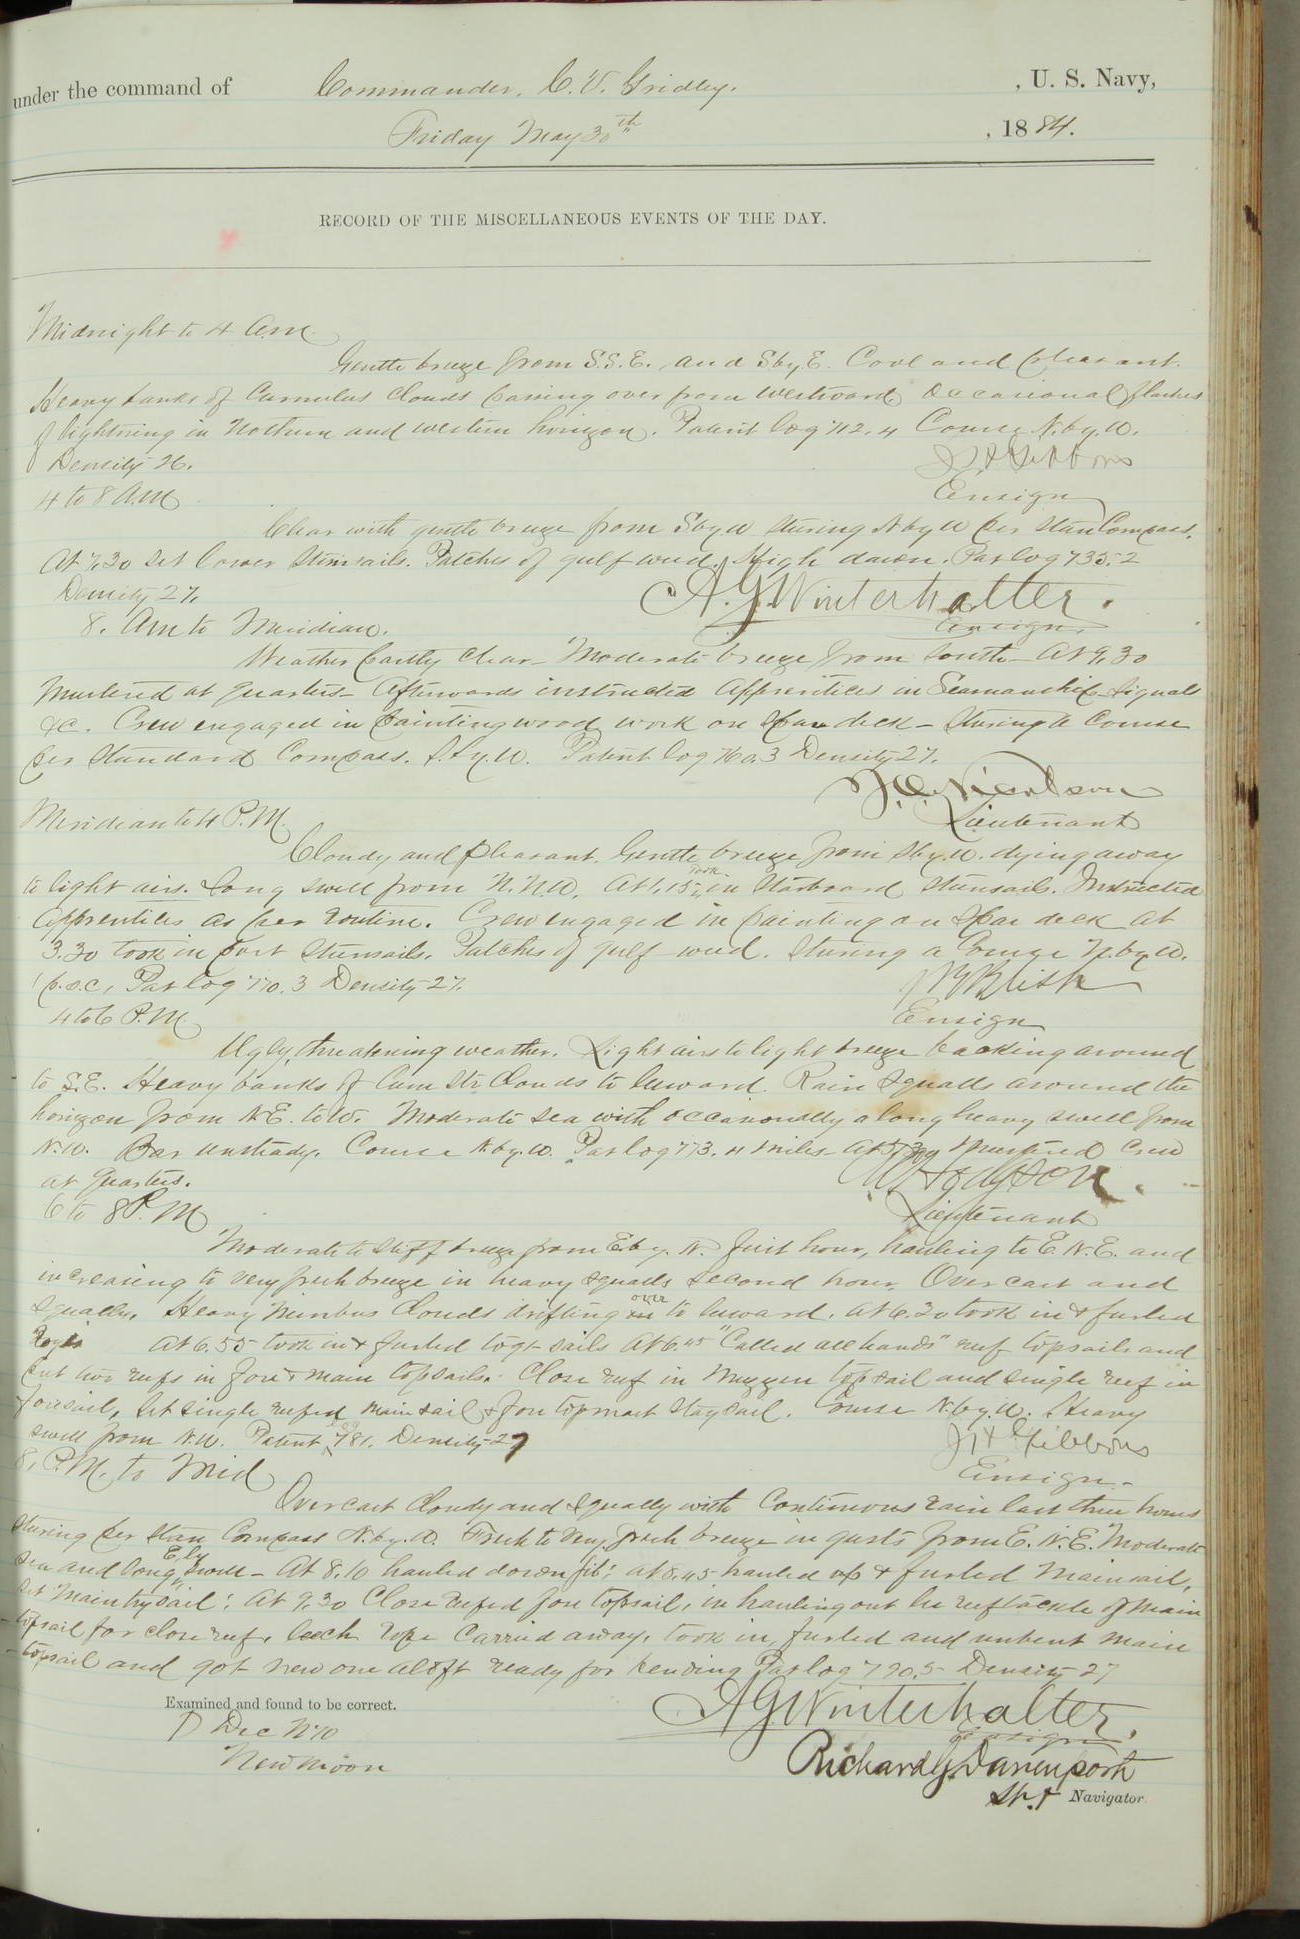 under the command of Commander. C. V. Gridley. , U. S. Navy,
Friday May 30th , 1884.
RECORD OF THE MISCELLANEOUS EVENTS OF THE DAY.
Midnight to 4 A.M.
Gentle breeze from S.S.E. and S by E. Cool and pleasant.
Heavy banks of Cumulus Clouds passing over from Westward Occasional flashes
of lightning in Nothern and western horizon. Patent log 712.4 Course N. by. W.
Density 26. J H Gibbons
4 to 8 A.M. Ensign
Clear with gentle breeze from S by W Stering N by W per Stan Compass.
At 7.30 Set lower Stunsails. Patches of gulf weed. High dawn. Pat log 735.2
Density 27. A.G. Winterhalter.
8. Am to Meridian. Ensign.
Weather partly Clear – Moderate breeze from South – At 9.30
Mustered at quarters – Afterwards instructed Apprentices in Seamanship – Signals
&c. Crew engaged in painting wood work on Spar deck – Stering a Course
per Standard Compass. N. by. W. Patent log 760.3 Density 27.
Meridian to 4 P.M. Lieutenant
Cloudy and pleasant. Gentle breeze from S by. W. dying away
to light airs. Long swell from N.N.W. At 1.15 took in Starboard Stunsails. Instructed
Apprentices as per routine. Crew engaged in painting on Spar deck At
3.30 took in port Stunsails. Patches of gulf weed. Stering a Course N. by. W.
p.s.c. Pat log 770.3 Density 27. Blish
4 to 6 P.M. Ensign
Ugly, threatening weather. Light airs to light breeze backing around
to S.E. Heavy banks of Cum Str Clouds to leward. Rain Squalls around the
horizon from N.E. to W. Moderate Sea with occasionally a long heavy swell from
N.W. Bar unsteady. Course N. by. W. Pat log 773.4 miles – At 5.30 Mustered Crew
at Quarters.
6 to 8 P.M. Lieutenant
Moderate to Stiff breeze from E by. N. first hour, hauling to E.N.E. and
increasing to very fresh breeze in heavy squalls second hour. Overcast and
Squally. Heavy Nimbus Clouds drifting over to leward. At 6.20 took in & furled
At 6.55 took in & furled togt sails At 6.45 "Called all hands" reef topsails and
put two reefs in fore & main topsails. Close reef in Mizzen topsail and single reef in
foresail. Set single reefed mainsail & fore topmast staysail. Course N. by. W. Heavy
swell from N.W. Patent log 781. Density 27 J H Gibbons
8. P.M. to Mid Ensign –
Overcast Cloudy and Squally with Continuous rain last three hours
Stering per Stan Compass N. by. W. Fresh to very fresh breeze in gusts from E.N.E. Moderate
sea and long E,ly Swell – At 8.10 hauled down jib; at 8.45 hauled up & furled Mainsail,
Set Maintrysail; At 9.30 Close reefed fore topsail, in hauling out lee reef tackle of main
topsail for close reef, leech rope Carried away, took in, furled and unbent main
topsail and got new one aloft ready for bending Pat log 790.5 Density 27
Examined and found to be correct. A G Winterhalter.
Ensign
Dec N 10
New Moon Richard G. Davenport
Navigator